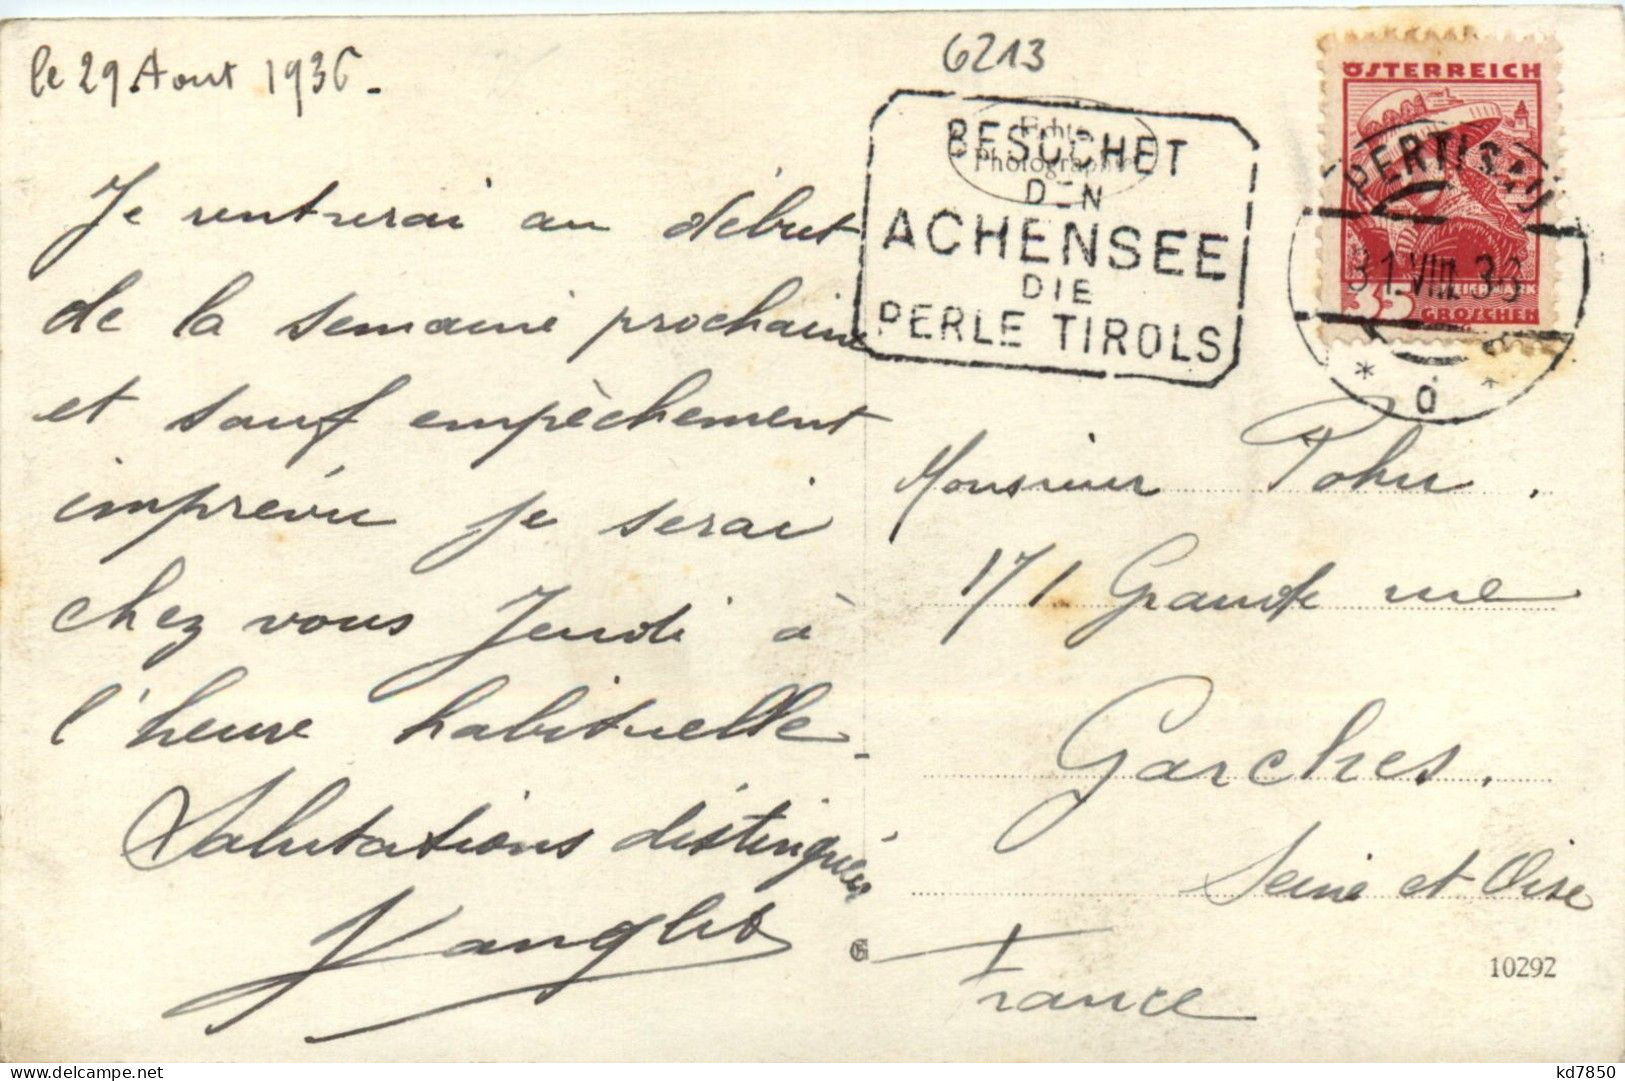 le 29 Aout 1936.
6213
Je rentrerai au début
de la semaine prochaine
et sauf empêchement
imprévu je serai
chez vous Jeudi à
l'heure habituelle.
Salutations distinguées
Echte
Photographie
BESUCHET
DEN
ACHENSEE
DIE
PERLE TIROLS
ÖSTERREICH
PERTISAU
31.VIII.36
STEIERMARK
35 GROSCHEN
* a *
Monsieur Pohu.
171 Grande rue
Garches.
Seine et Oise
France
10292
kd7850